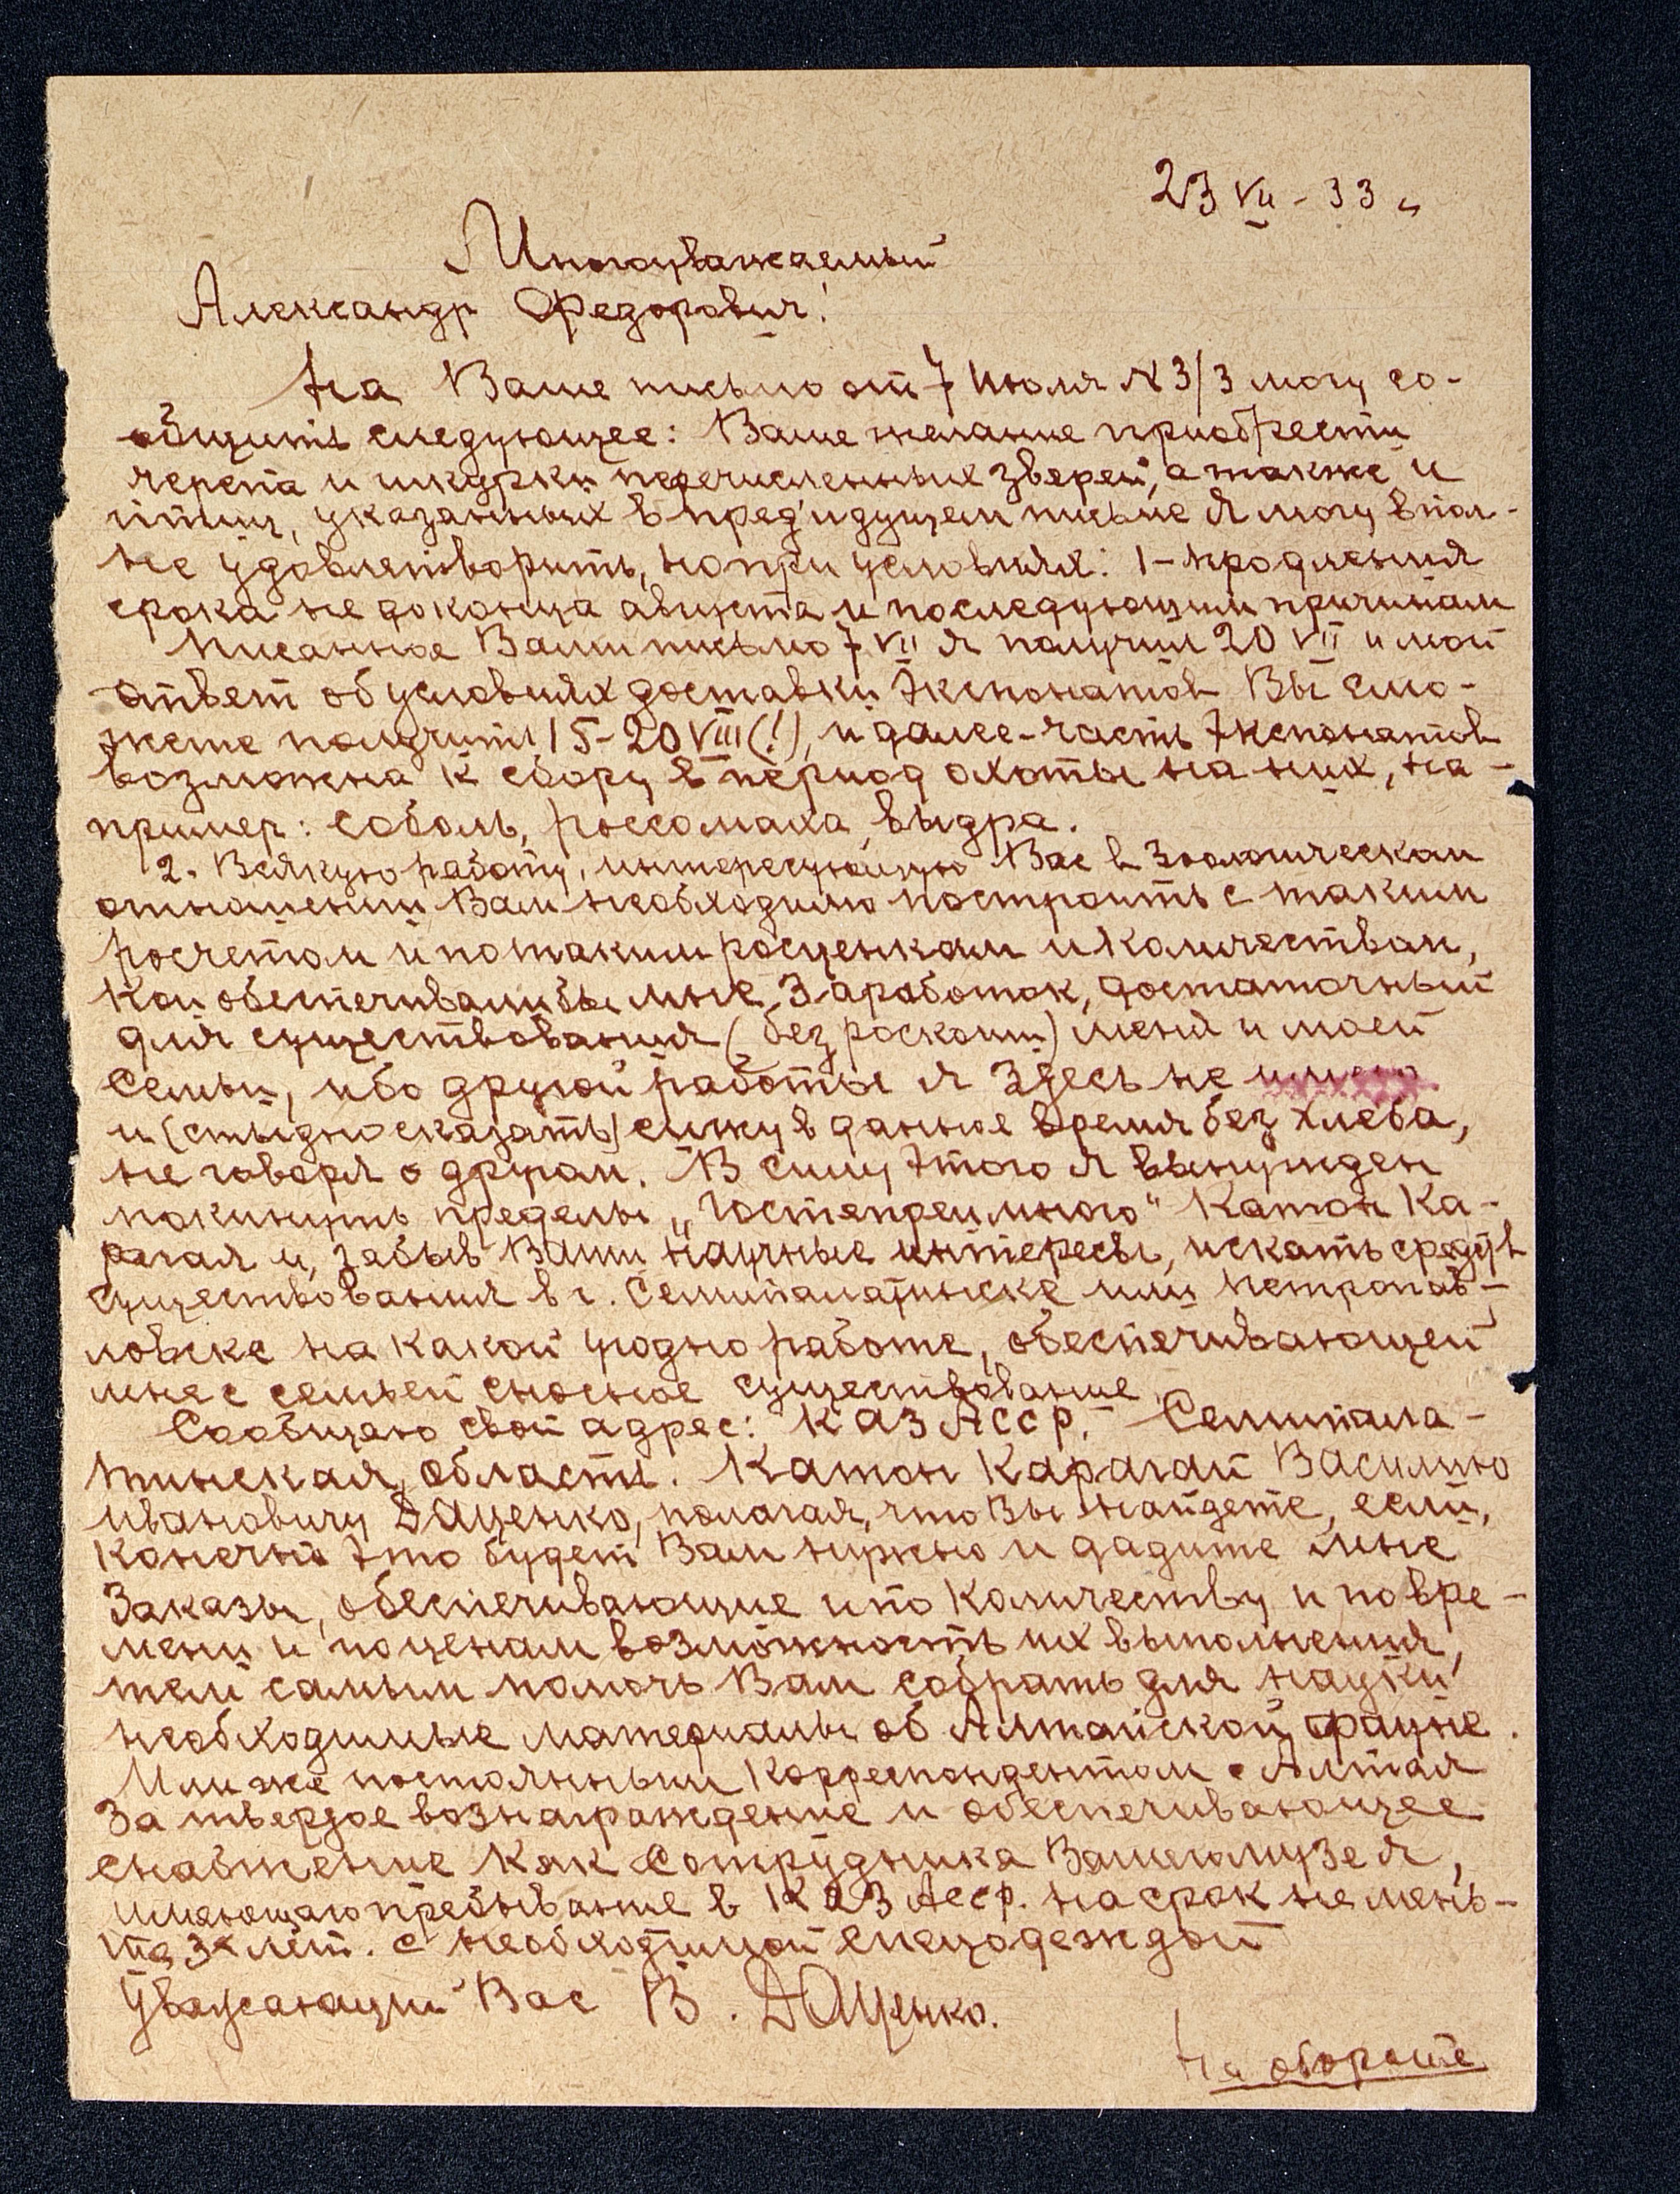 23 VII - 33 г.
Многоуважаемый
Александр Федорович!
На Ваше письмо от 7 Июля №3/3 могу со-
общить следующее: Ваше желание приобрести
черепа и шкурки перечисленных зверей, а также и
птиц, указанных в пред'идущем письме я могу впол-
не удовлетворить, но при условиях: 1 - продления
срока не до конца августа и последующим причинам
Писанное Вами письмо 7 VII я получил 20 VII и мой
ответ об условиях доставки экспонатов Вы смо-
жете получить 15-20 VIII (!), и далее - часть экспонатов
возможна к сбору в период охоты на них, на-
пример: соболь, россомаха, выдра.
2. Всякую работу, интересующую Вас в зоологическом
отношении Вам необходимо построить с таким
росчетом и по таким росценкам и количествам,
кои обеспечивали бы мне заработок, достаточный
для существования (без роскоши) меня и моей
семьи, ибо другой работы я здесь не имею
и (стыдно сказать) сижу в данное время без хлеба,
не говоря о другом. В силу этого я вынужден
покинуть пределы „гостепреимного" Катон Ка-
рагая и, забыв Ваши научные интересы, искать средств
существования в г. Семипалатинске или Петропав-
ловске на какой угодно работе, обеспечивающей
мне с семьей сносное существование.
Сообщаю свой адрес: КАЗ АССР. Семипала-
тинская область. Катон Карагай Василию
Ивановичу Даценко, полагая, что Вы найдете, если,
конечно это будет Вам нужно и дадите мне
заказы, обеспечивающие и по количеству и по вре-
мени и по ценам возможность их выполнения,
тем самым помочь Вам собрать для науки
необходимые материалы об Алтайской фауне.
Или же постоянным корреспондентом с Алтая
за твердое вознаграждение и обеспечивающее
снабжение как сотрудника Вашего музея,
имеющаго пребывание в КАЗ АССР. на срок не мень-
ше 3х лет. с необходимой спецодеждой
Уважающий Вас В. Даценко.
На обороте